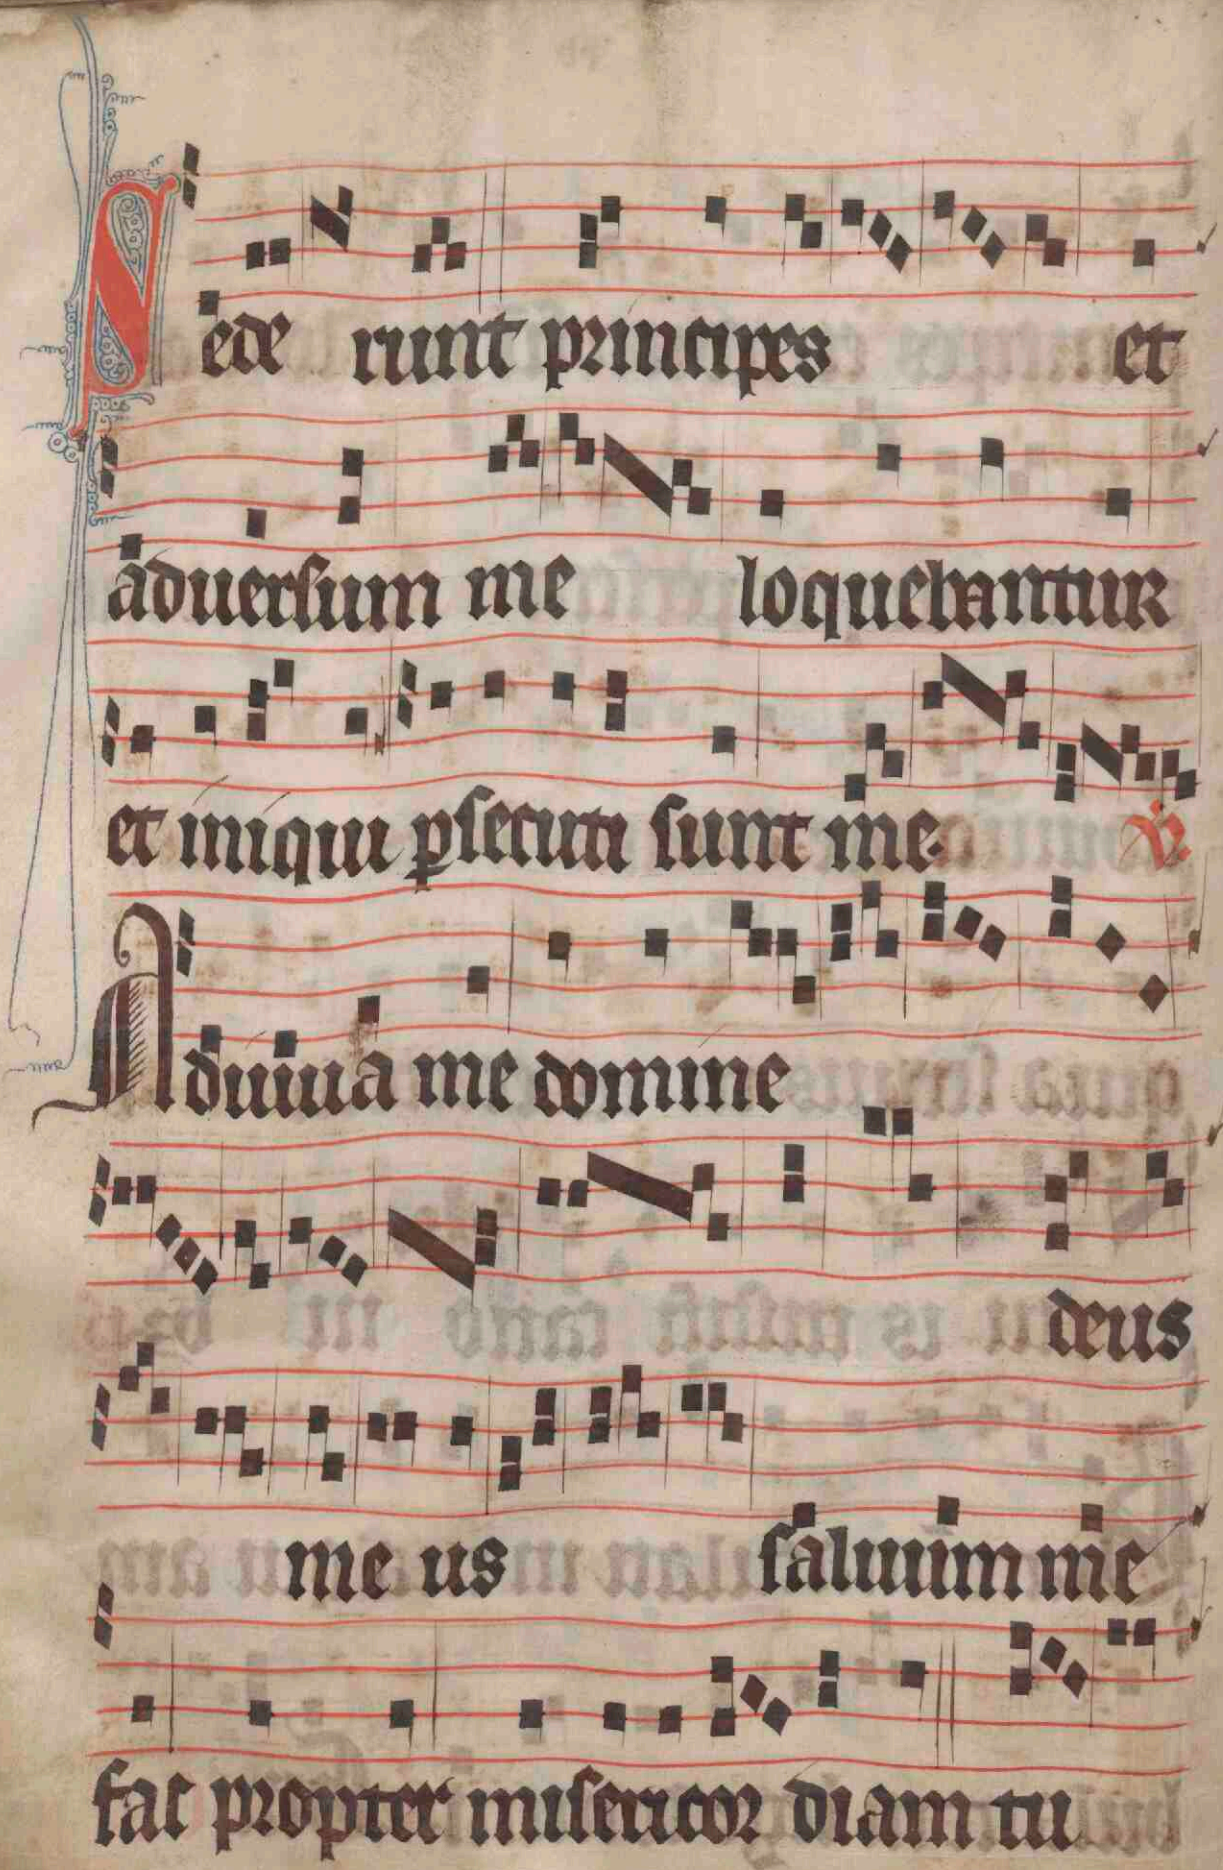 Sede runt principes et
aduersum me loquebantur
et iniqui ꝑsecuti sunt me. ℣.
Adiuua me domine
deus
me us saluum me
fac propter misericor diam tu